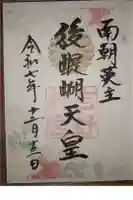 南朝英主
後醍醐天皇
令和七年十二月十三日